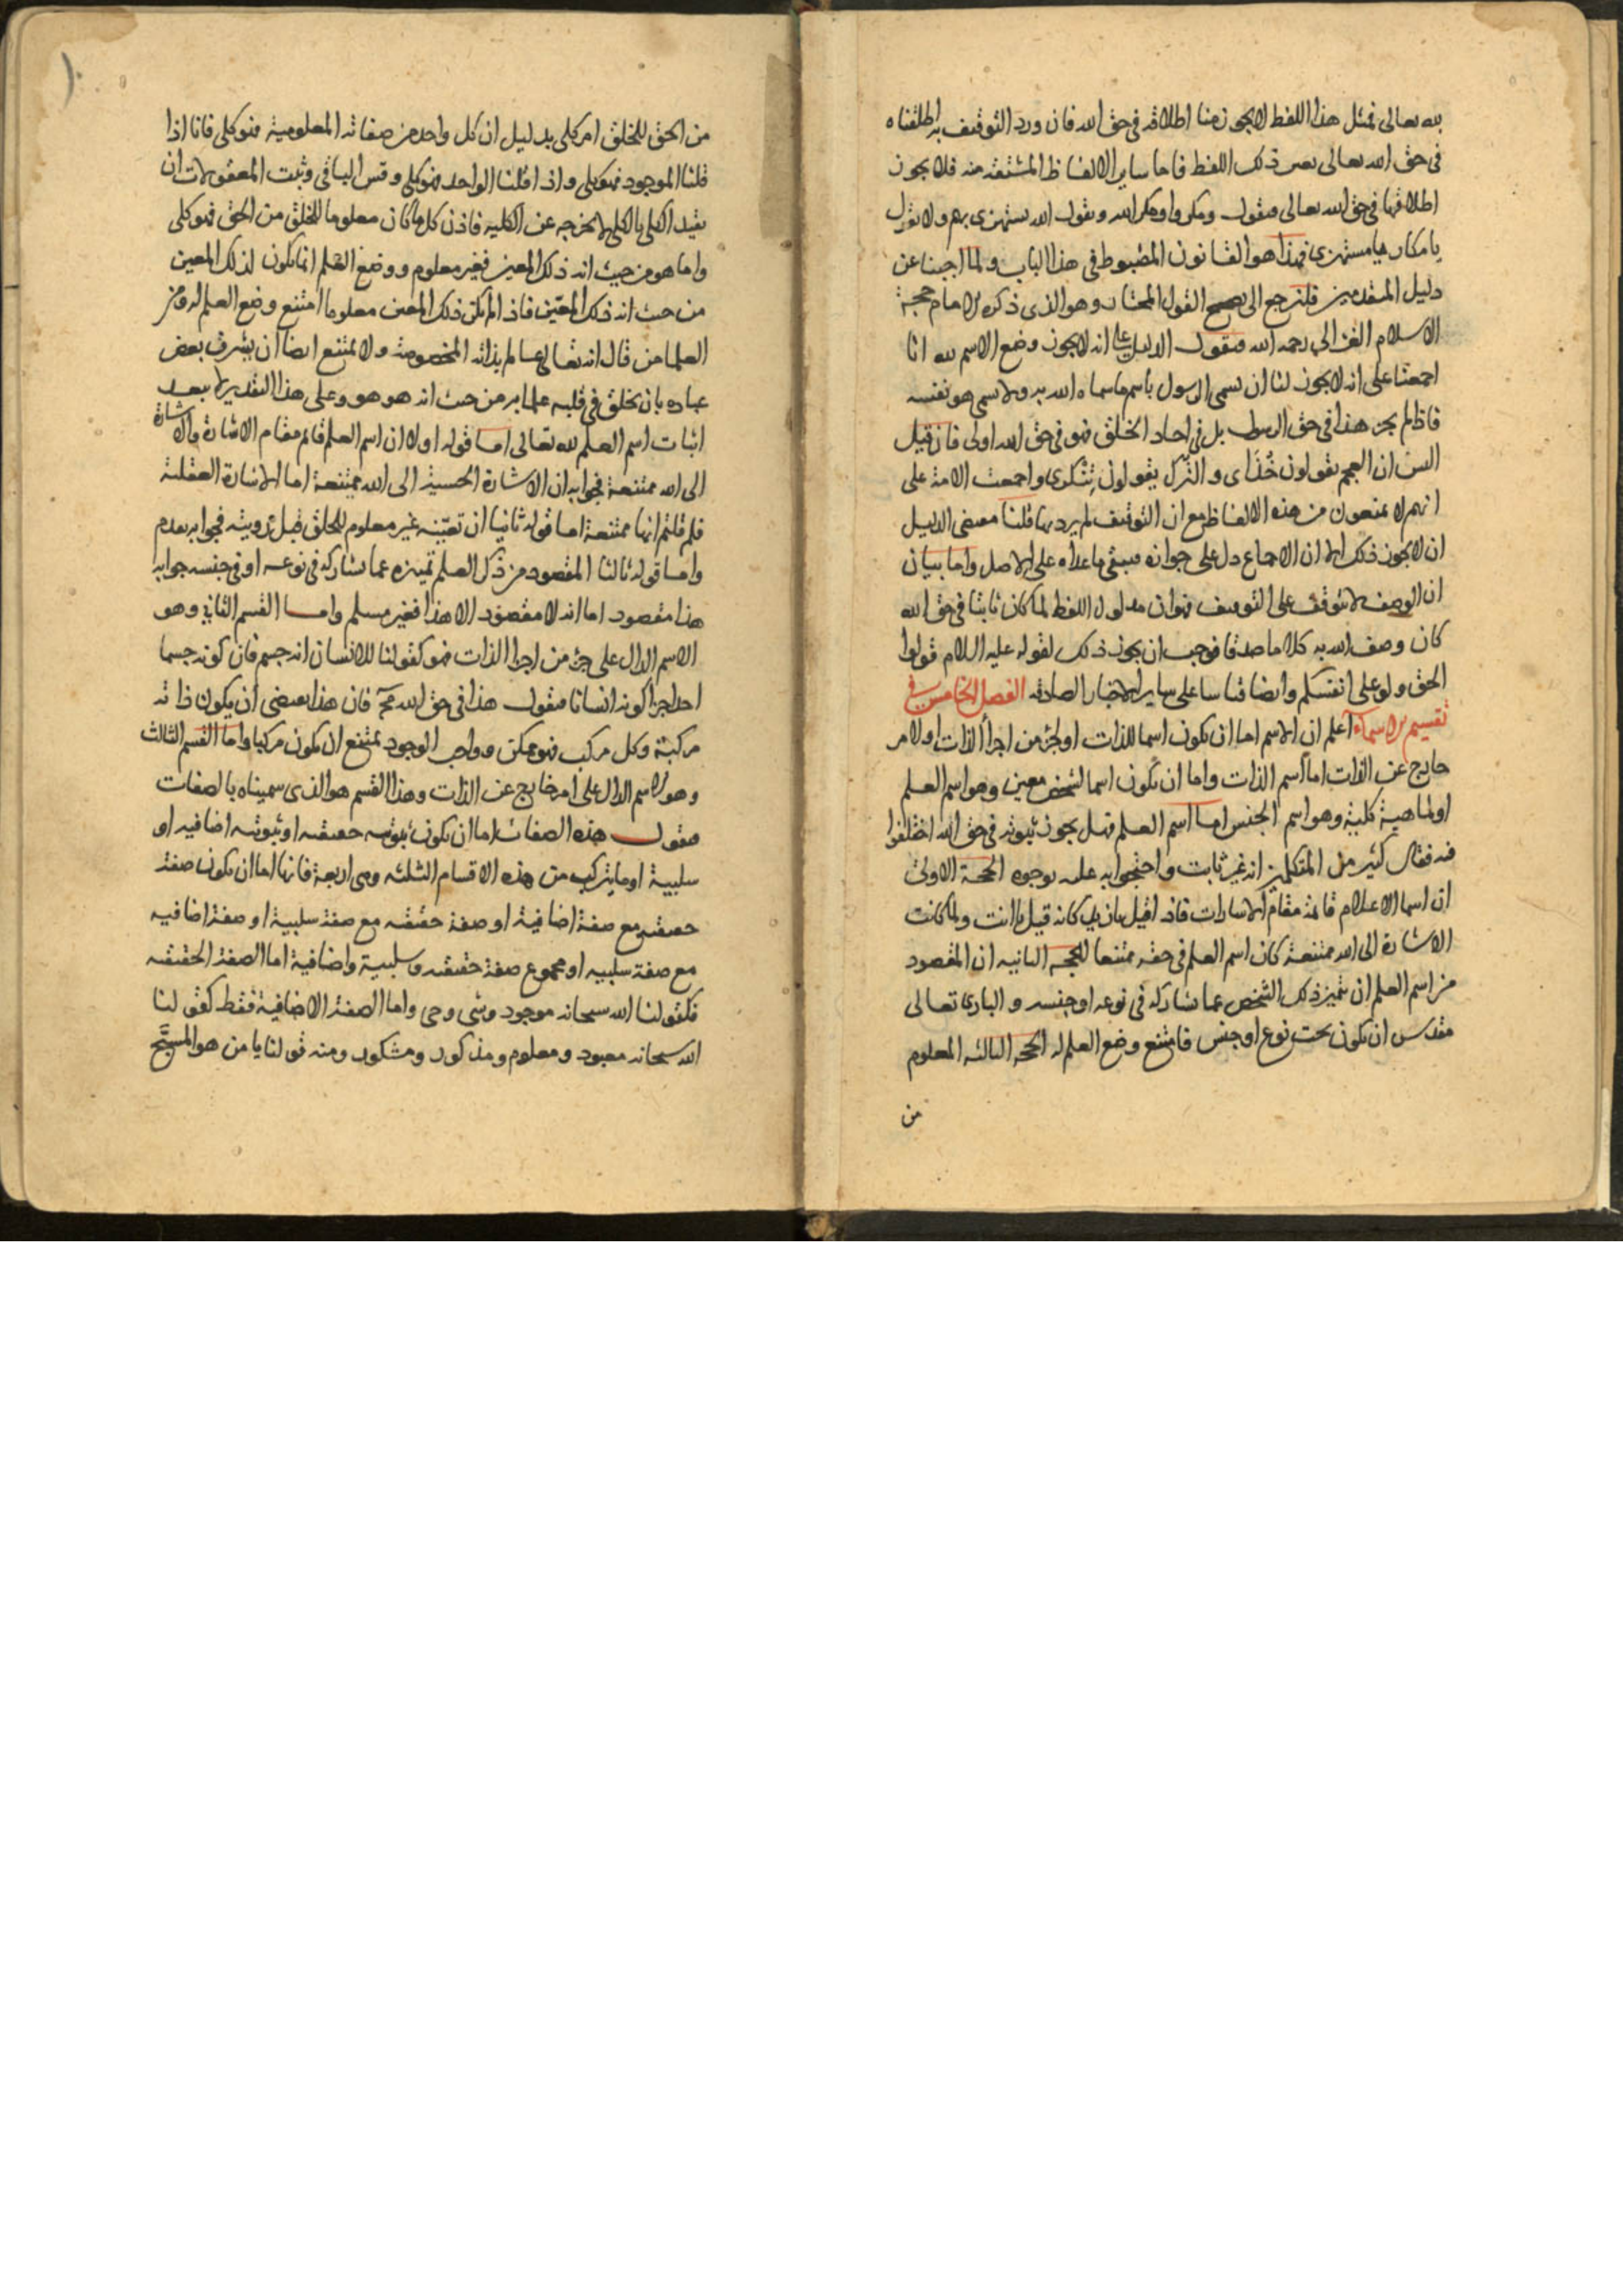 لله تعالى فمثل هذا اللفظ لا يجوز منا اطلاقه فى حق الله فان ورد التوقيف به اطلقناه
فى حق الله تعالى بعين ذلك اللفظ فاما ساير الالفاظ المشتقة منه فلا يجوز
اطلاقها فى حق الله تعالى فنقول ومكروا ومكر الله ونقول الله يستهزى بهم ولا نقول
يا مكار يا مستهزى فهذا هو القانون المضبوط فى هذا الباب ولما اجبنا عن
دليل المتقدمين فلنرجع الى تصحيح القول المختار وهو الذى ذكره الامام حجة
الاسلام الغزالي رحمه الله فنقول الدليل على انه لا يجوز وضع الاسم لله انا
اجمعنا على انه لا يجوز لنا ان نسمى الرسول باسم ما سماه الله به ولا سمى هو نفسه
فاذا لم يجز هذا فى حق الرسول بل فى احاد الخلق فهو فى حق الله اولى فان قيل
اليس ان العجم يقولون خُدَاى و الترك يقولون تِنْكرى واجمعت الامة على
انهم لا يمنعون من هذه الالفاظ مع ان التوقيف لم يرد بها قلنا مقتضى الدليل
ان لا يجوز ذلك الا ان الاجماع دل على جوازه فيبقى ما عداه على الاصل واما بيان
ان الوصف لا يتوقف على التوقيف فهو ان مدلول اللفظ لما كان ثابتا فى حق الله
كان وصف الله به كلاما صدقا فوجب ان يجوز ذلك لقوله عليه السلام قولوا
الحق ولو على انفسكم وايضا قياسا على ساير الاخبار الصادقة الفصل الخامس فى
تقسيم الاسماء اعلم ان الاسم اما ان يكون اسما للذات او لجزء من اجزأ الذات او لامر
خارج عن الذات اما اسم الذات واما ان يكون اسما لشخص معين وهو اسم العلم
او لماهية كلية وهو اسم الجنس اما اسم العلم فهل يجوز ثبوته فى حق الله اختلفوا
فيه فقال كثير من المتكلمين انه غير ثابت واحتجوا به عليه بوجوه الحجة الاولى
ان اسما الاعلام قائمة مقام الاشارات فاذا قيل يا زيد كانه قيل يا انت ولما كانت
الاشارة الى الله ممتنعة كان اسم العلم فى حقه ممتنعا الحجة الثانيه ان المقصود
من اسم العلم ان يتميز ذلك الشخص عما يشاركه فى نوعه او جنسه و البارى تعالى
مقدس ان يكون تحت نوع او جنس فامتنع وضع العلم له الحجة الثالثه المعلوم
من
من الحق للخلق امر كلى بدليل ان كل واحد من صفاته المعلومية فهو كلى فانا اذا
قلنا الموجود فهو كلى واذا قلنا الواحد فهو كلى وقس الباقى وثبت المعقولات ان
تقيد الكلى بالكلى لا يخرجه عن الكليه فاذن كل ما كان معلوما للخلق من الحق فهو كلى
واما هو من حيث انه ذلك المعين فغير معلوم ووضع العلم انما يكون لذلك المعين
من حيث انه ذلك المعين فاذا لم يكن ذلك المعين معلوما امتنع وضع العلم له ومن
العلما من قال انه تعالى عالم بذاته المخصوصة ولا يمتنع ايضا ان يشرف بعض
عباده بان يخلق فى قلبه علما به من حيث انه هو هو وعلى هذا التقدير لا يبعد
اثبات اسم العلم لله تعالى اما قوله اولا ان اسم العلم قائم مقام الاشارة والاشارة
الى الله ممتنعة فجوابه ان الاشارة الحسية الى الله ممتنعة اما الاشارة العقلية
فلم قلتم انها ممتنعة اما قوله ثانيا ان تعيّنه غير معلوم للخلق قبل رويته فجوابه بعدم
واما قوله ثالثا المقصود من ذكر العلم تميزه عما يشاركه فى نوعه او فى جنسه جوابه
هذا مقصود اما انه لا مقصود الا هذا فغير مسلم واما القسم الثاني وهو
الاسم الدال على جزء من اجزا الذات فهو كقولنا للانسان انه جسم فان كونه جسما
احد اجزا كونه انسانا فنقول هذا فى حق الله مح فان هذا يقتضى ان يكون ذاته
مركبة وكل مركب فهو ممكن وواجب الوجود يمتنع ان يكون مركبا واما القسم الثالث
وهو الاسم الدال على امر خارج عن الذات وهذا القسم هو الذى سميناه بالصفات
فنقول هذه الصفات اما ان يكون ثبوتيه حقيقيه او ثبوتيه اضافيه او
سلبية او ما يتركب من هذه الاقسام الثلثه وهى اربعة فانها اما ان يكون صفة
حقيقيه مع صفة اضافية او صفة حقيقيه مع صفة سلبية او صفة اضافيه
مع صفة سلبيه او مجموع صفة حقيقيه وسلبية واضافية اما الصفة الحقيقيه
فكقولنا الله سبحانه موجود وشى وحى واما الصفة الاضافية فقط كقولنا
الله سبحانه معبود ومعلوم ومذكور ومشكور ومنه قولنا يا من هو المسبَّح